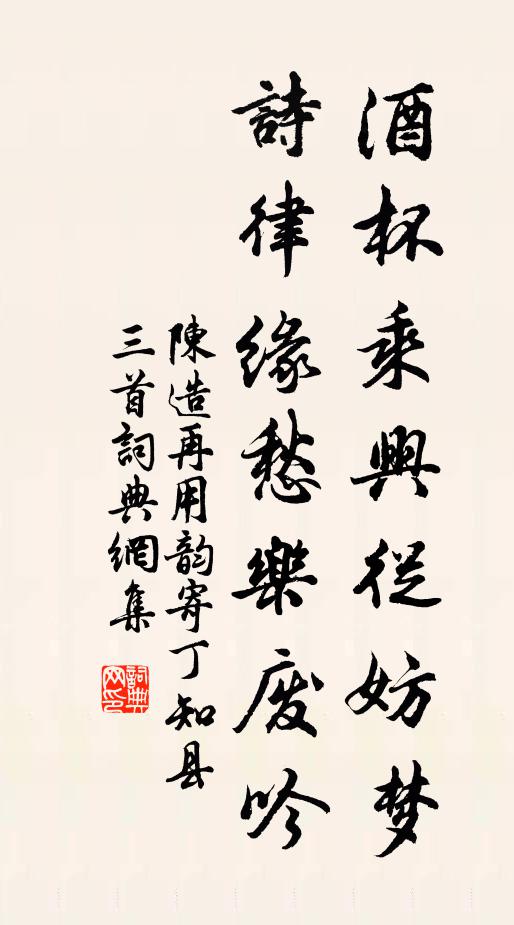 酒杯乘興從妨梦
詩律緣愁樂废吟
陳造再用韵寄丁知县
三首詞典網集
詞典
网印